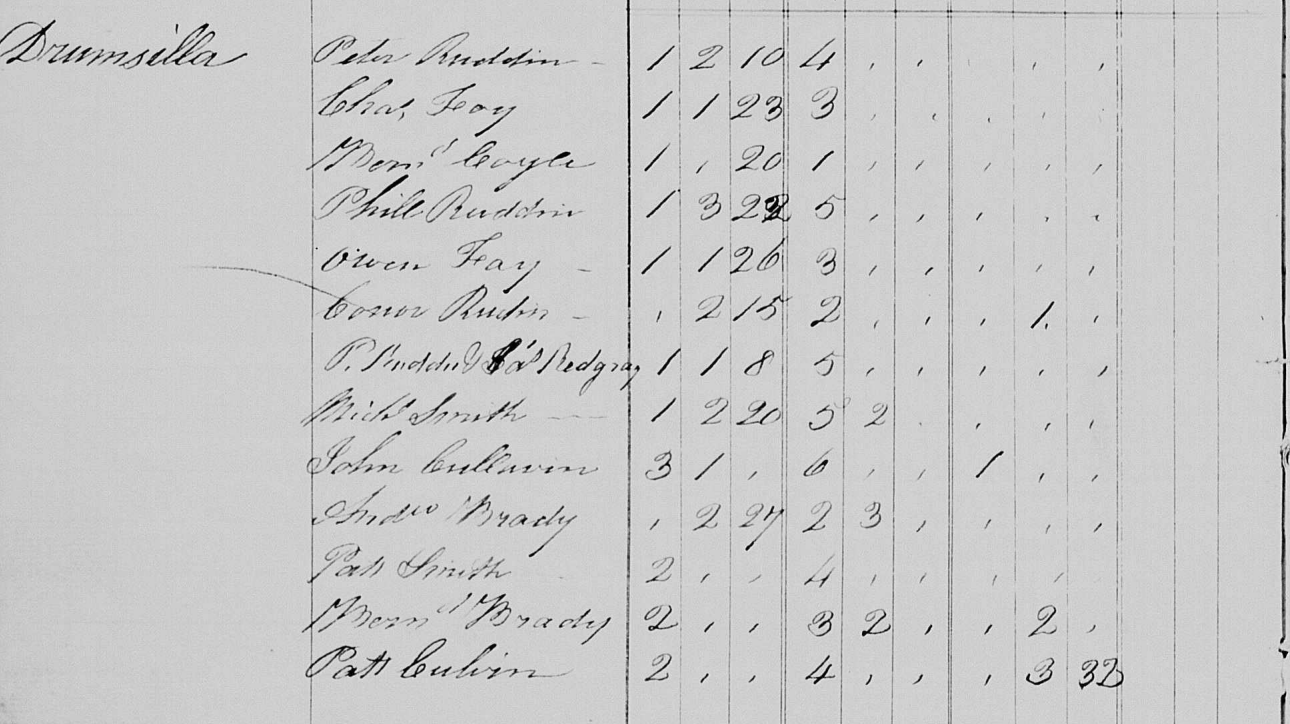 Drumsilla Peter Ruddin - 1 2 10 4 , , , , ,
Chas, Foy 1 1 23 3 , , , , ,
Bernd Coyle 1 , 20 1 , , , , ,
Phill Ruddin 1 3 5 , , , , ,
Owen Fay - 1 1 26 3 , , , , ,
Conor Rudin - , 2 15 2 , , , 1. ,
P. Redgray 1 1 8 5 , , , , ,
Michl Smith - 1 2 20 5 2 , , , ,
John Cullavin 3 1 , 6 , , 1 , ,
Andw Brady , 2 27 2 3 , , , ,
Patt Smith 2 , , 4 , , , , ,
Bernd Brady 2 , , 3 2 , , 2 ,
Patt Culvin 2 , , 4 , , , 3 32